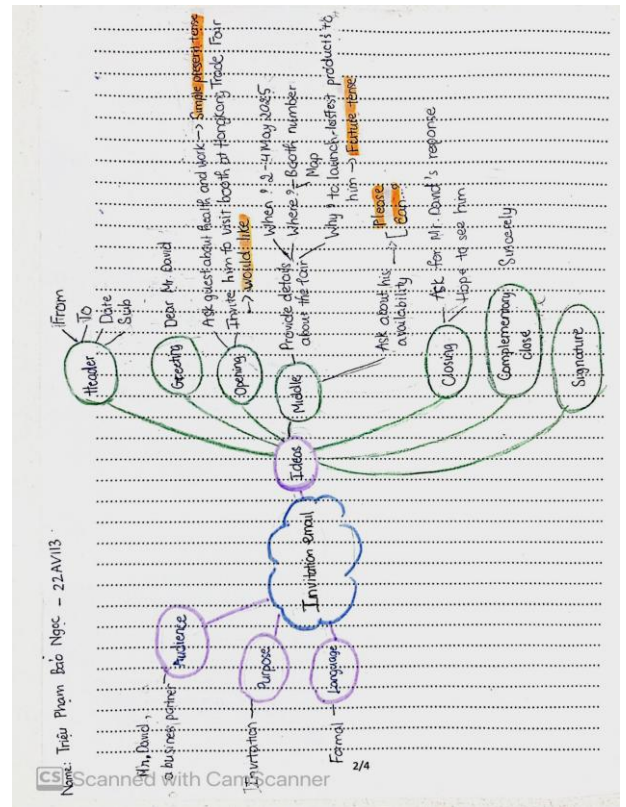 Name: Triệu Phạm Bảo Ngọc - 22AV113
Mr. David,
a business partner
Audience
Invitation
Purpose
Formal
Language
Invitation email
Ideas
Header
From
To
Date
Sub
Greeting
Dear Mr. David
Opening
Ask guest about health and work → Simple present tense
Invite him to visit booth at Hongkong Trade Fair
→ would like
Middle
Provide details
about the fair
When? 2-4 May 2025
Where? Booth number
Map
Why? to launch lastest products to
him → Future tense
Ask about his
availability
→ Please
Can...
Closing
Ask for Mr. David's reponse
Hope to see him
Complementary
close
Sincerely
Signature
2/4
CS Scanned with CamScanner